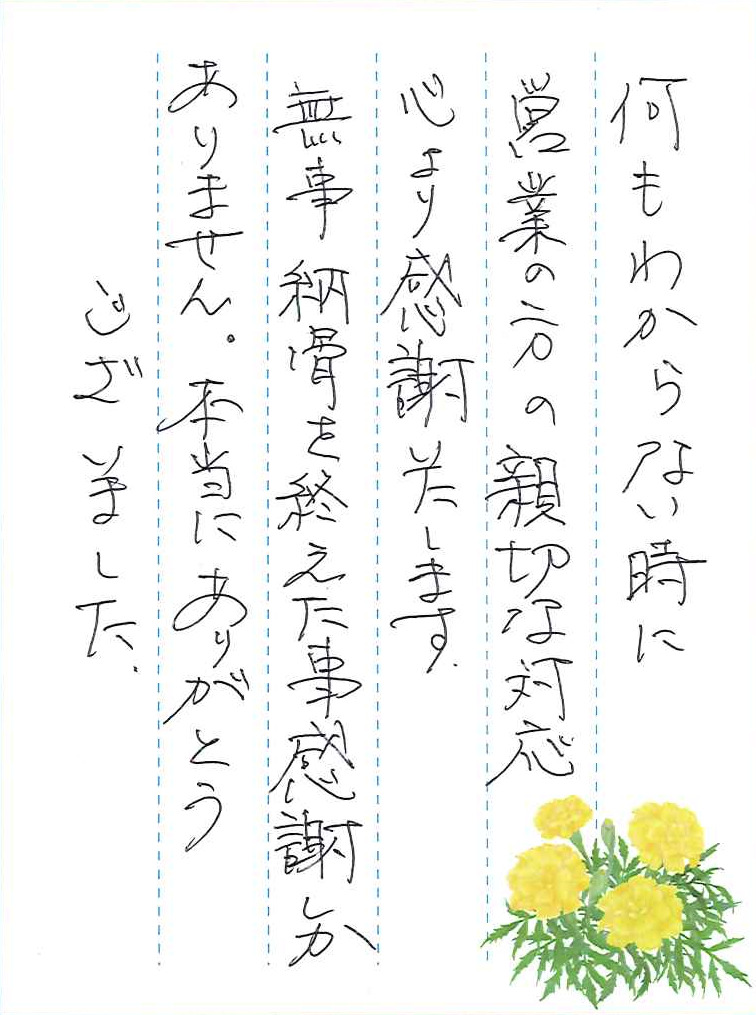 何もわからない時に
営業の方の親切な対応
心より感謝いたします.
無事納骨を終えた事感謝しか
ありません。本当にありがとう
ございました.